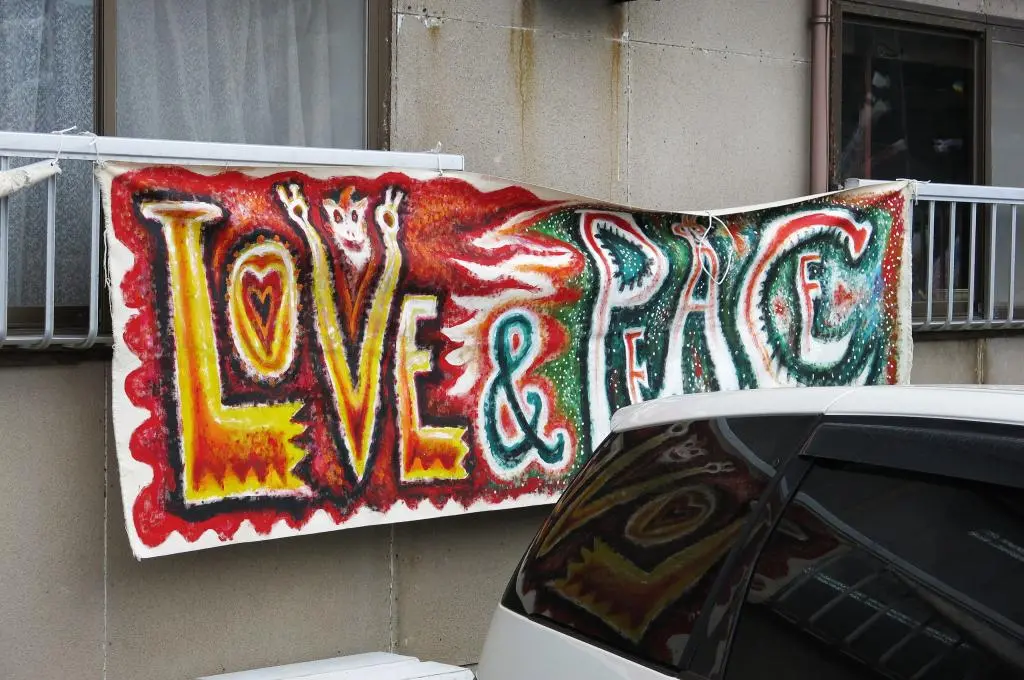 LOVE & PEACE